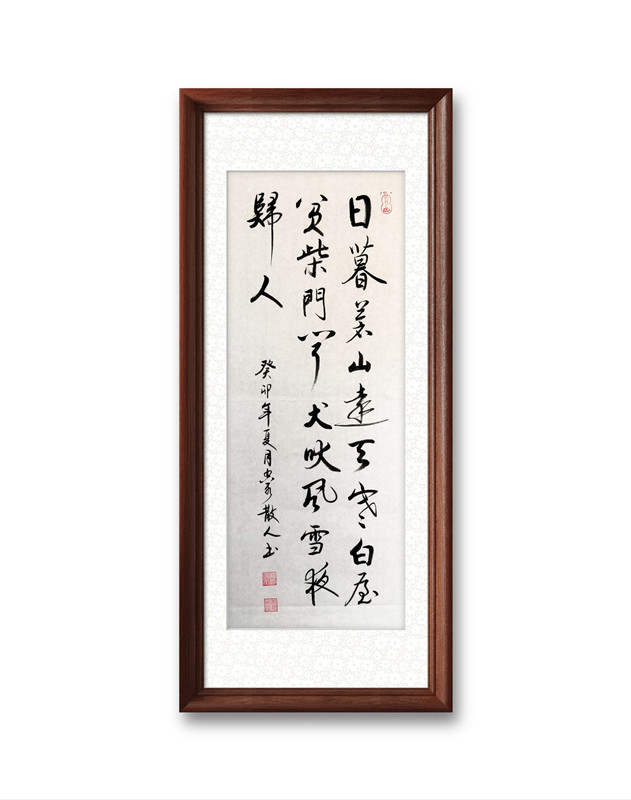 日暮苍山遠天寒白屋
贫柴門闻犬吠風雪夜
歸人
癸卯年夏月散人书